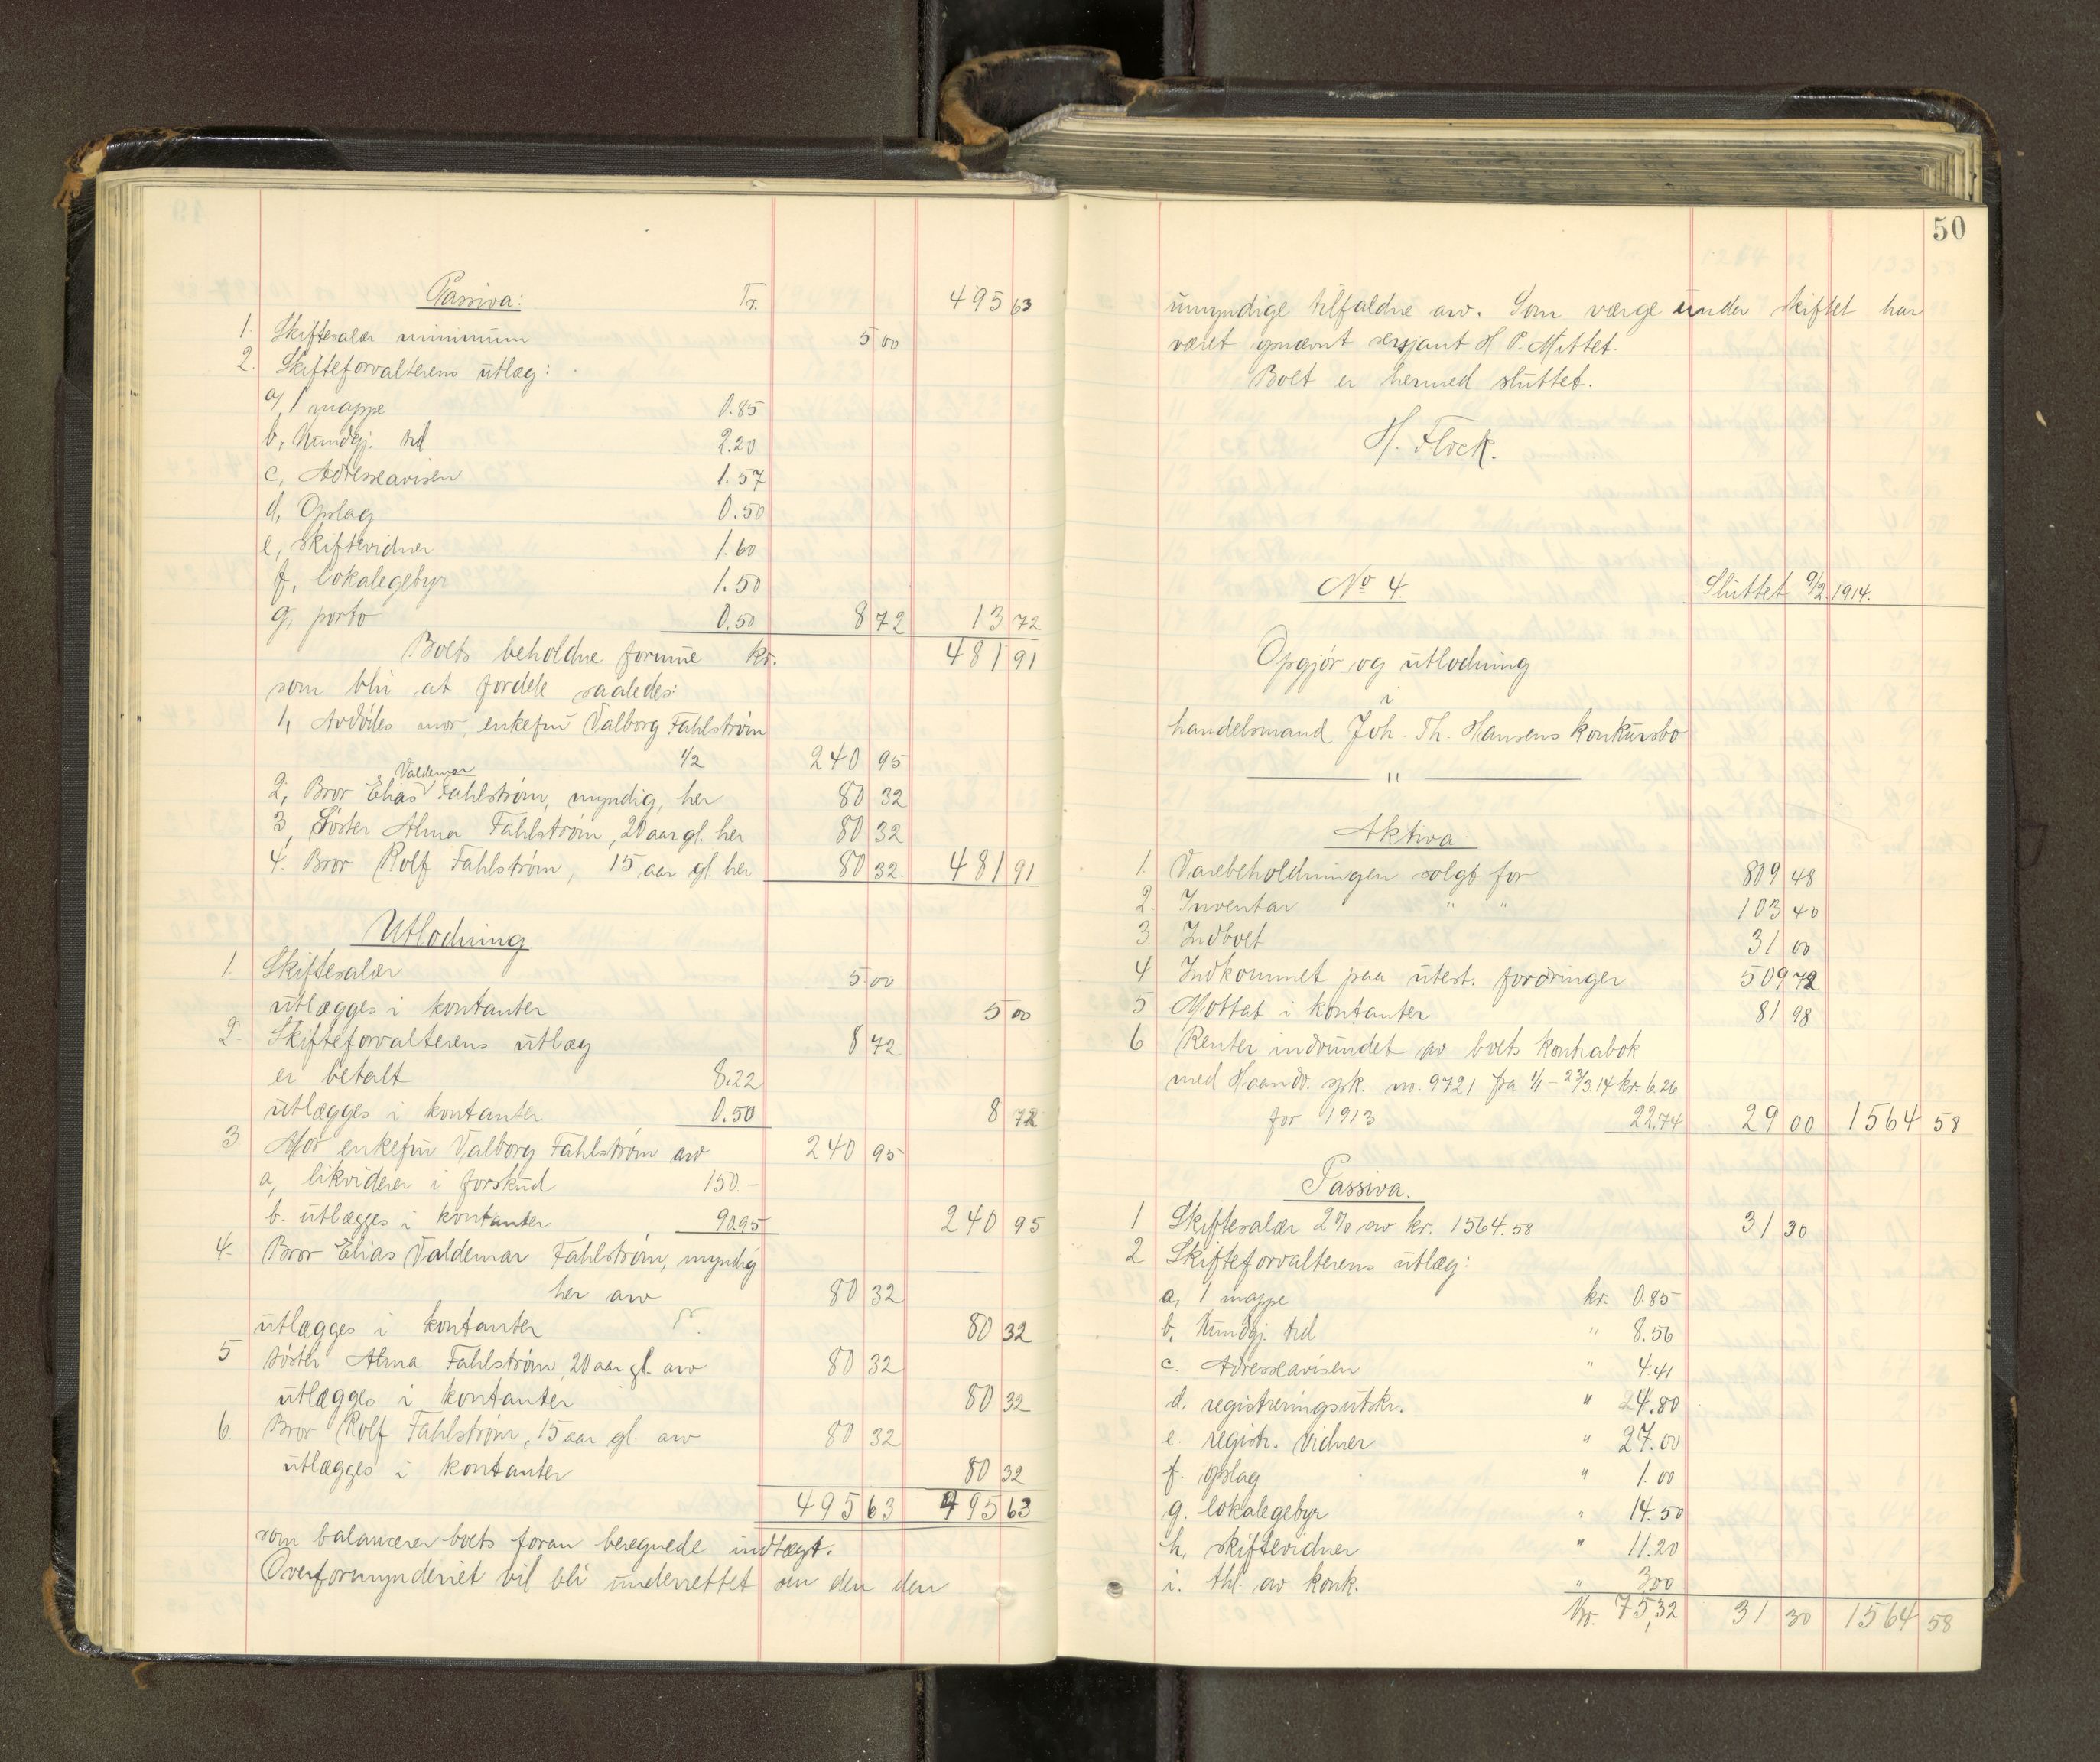 Passiva: Tr. 495 63
1. Skiftesalær minimum 5 00
2. Skifteforvalterens utlæg:
a, 1 mappe 0.85
b, Kundgj. tid 2.20
c, Adresseavisen 1.57
d, Opslag 0.50
e, skiftevidner 1.60
f, lokalegebyr 1.50
g, porto 0.50 8 72 13 72
Boets beholdne formue kr. 481 91
som blir at fordele saaledes:
1, Avdødes mor, enkefru Valborg Fahlstrøm
1/2 240 95
Valdemar
2, Bror Elias Fahlstrøm, myndig, her 80 32
3, Søster Alma Fahlstrøm, 20 aar gl. her 80 32
4. Bror Rolf Fahlstrøm, 15 aar gl. her 80 32. 481 91
Utlodning
1. Skiftesalær 5 00
utlægges i kontanter 5 00
2. Skifteforvalterens utlæg 8 72
er betalt 8.22
utlægges i kontanter 0.50 8 72
3 Mor enkefru Valborg Fahlstrøm arv 240 95
a, likviderer i forskud 150.-
b. utlægges i kontanter 90.95 240 95
4. Bror Elias Valdemar Fahlstrøm, myndig
her arv 80 32
utlægges i kontanter 80 32
5 Søster Alma Fahlstrøm, 20 aar gl. arv 80 32
utlægges i kontanter 80 32
6. Bror Rolf Fahlstrøm, 15 aar gl. arv 80 32
utlægges i kontanter 80 32
495 63 495 63
som balancerer boets foran beregnede indtægt.
Overformynderiet vil bli underrettet om den den
50
umyndige tilfaldne arv. Som værge under skiftet har
været opnævnt sersjant H. P. Mittet.
Boet er hermed sluttet.
H. Flock.
No 4. Sluttet 9/2.1914.
Opgjør og utlodning
i
handelsmand Joh. Th. Hansens konkursbo
"
Aktiva:
1. Varebeholdningen solgt for 809 48
2. Inventar " " 103 40
3. Indboet 31 00
4 Indkommet paa utest. fordringer 509 72
5 Mottat i kontanter 81 98
6 Renter indvundet av boets kontrabok
med Haandv. spk. no. 9721 fra 1/1 - 23/3.14 kr. 6.26
for 1913 22,74 29 00 1564 58
Passiva.
1 Skiftesalær 2% av kr. 1564.58 31 30
2 Skifteforvalterens utlæg:
a, 1 mappe kr. 0.85
b, Kundgj. tid " 8.56
c. Adresseavisen " 4.41
d. registreringsutskr. " 24.80
e. registr. vidner " 27.00
f. opslag " 1.00
g. lokalegebyr " 14.50
h, skiftevidner " 11.20
i. thl. av konk. " 3,00
Tr. 75,32 31 30 1564 58